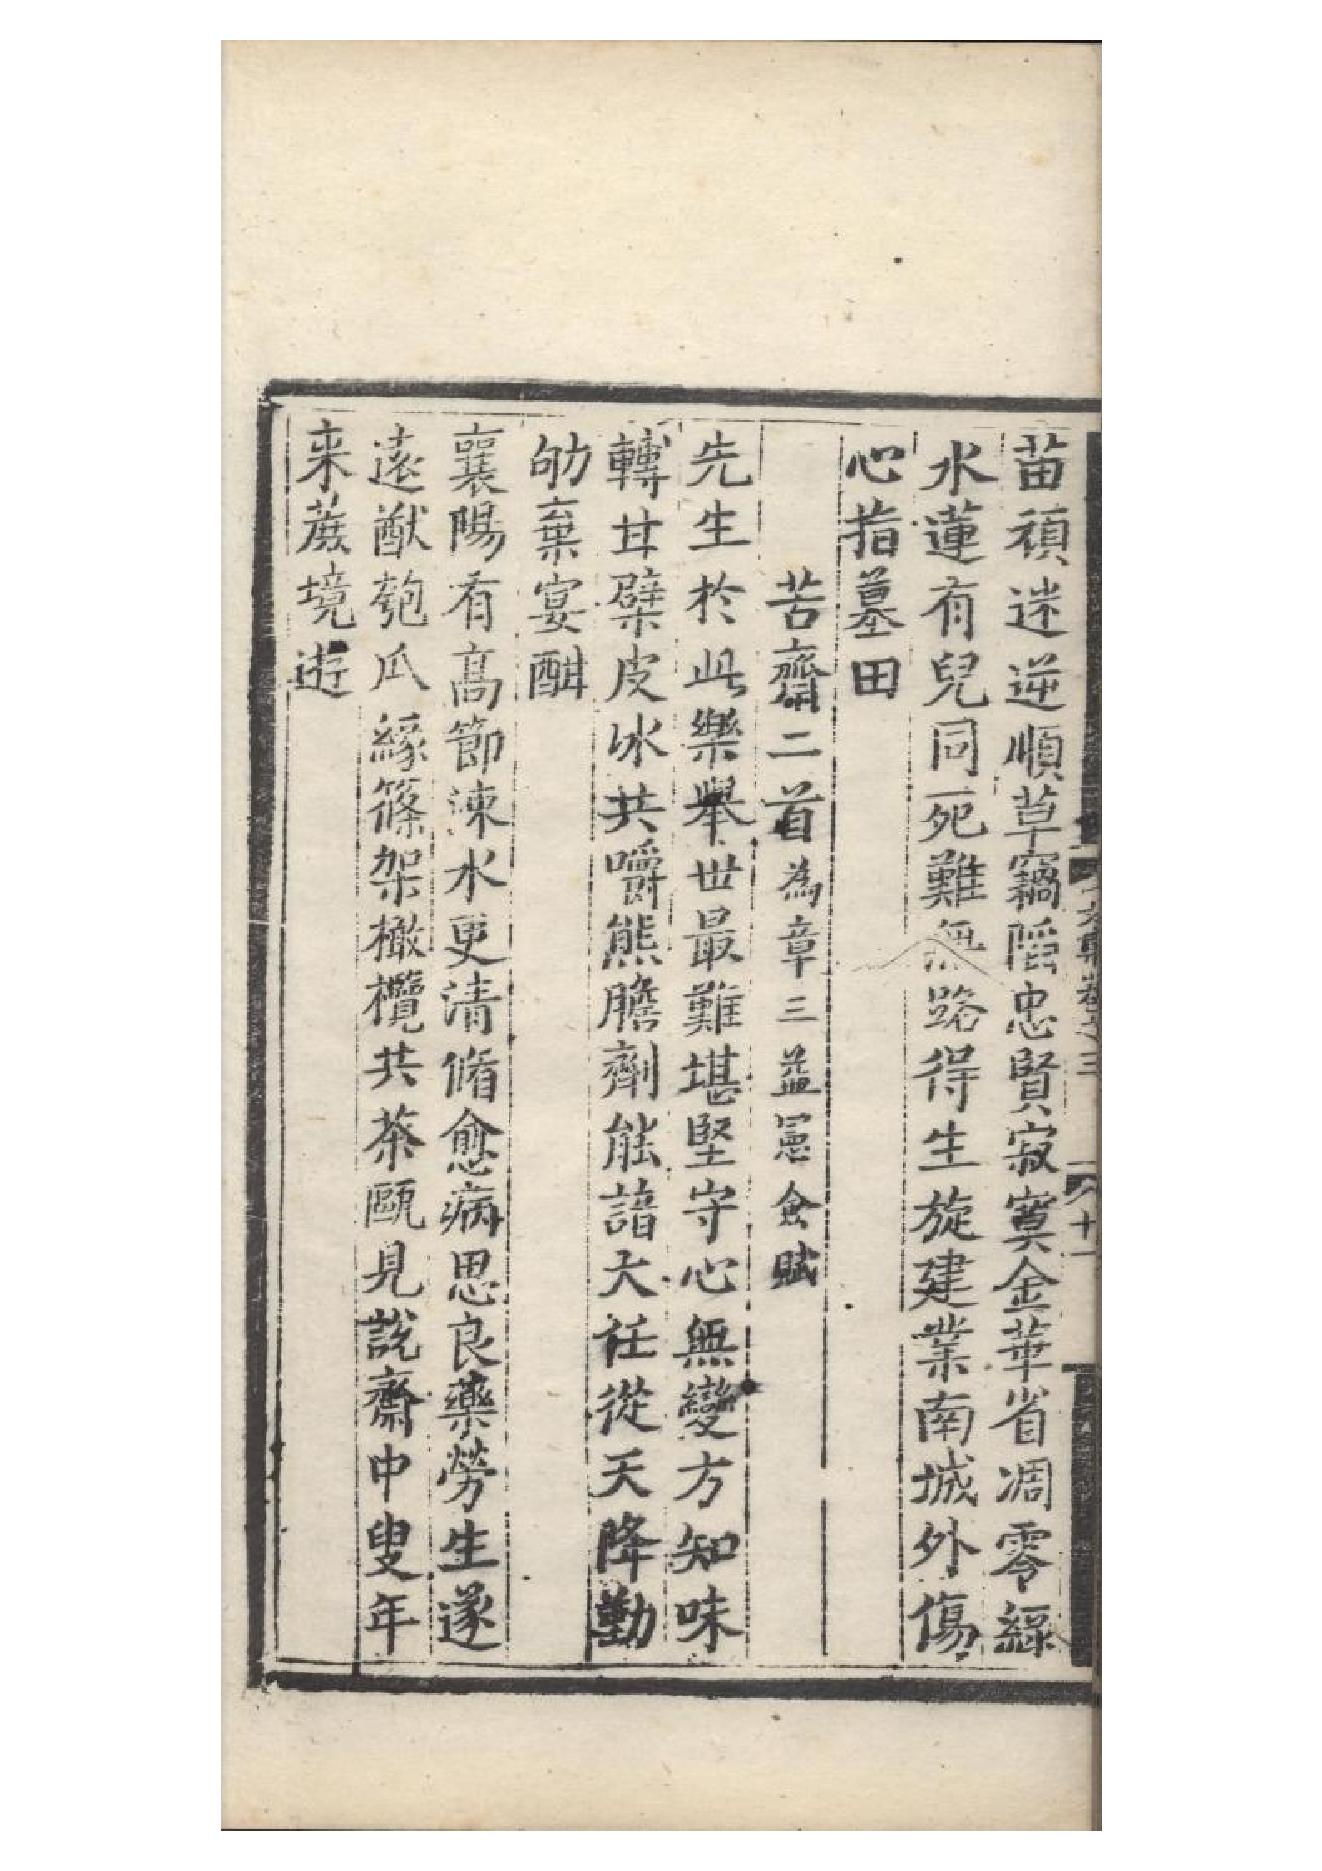 苗頑迷逆順草竊陷忠賢寂寞金華省凋零綠
水蓮有兒同一死難無路得生旋建業南城外傷
心指墓田
苦齋二首為章三益憲僉賦
先生於此樂舉世最難堪堅守心無變方知味
轉甘檗皮冰共嚼熊膽劑能諳大任從天降勤
劬棄宴酣
襄陽有高節涑水更清脩愈病思良藥勞生遂
遠猷匏瓜緣篠架橄欖共茶甌見說齋中叟年
来蔗境逰
卷之三
十一